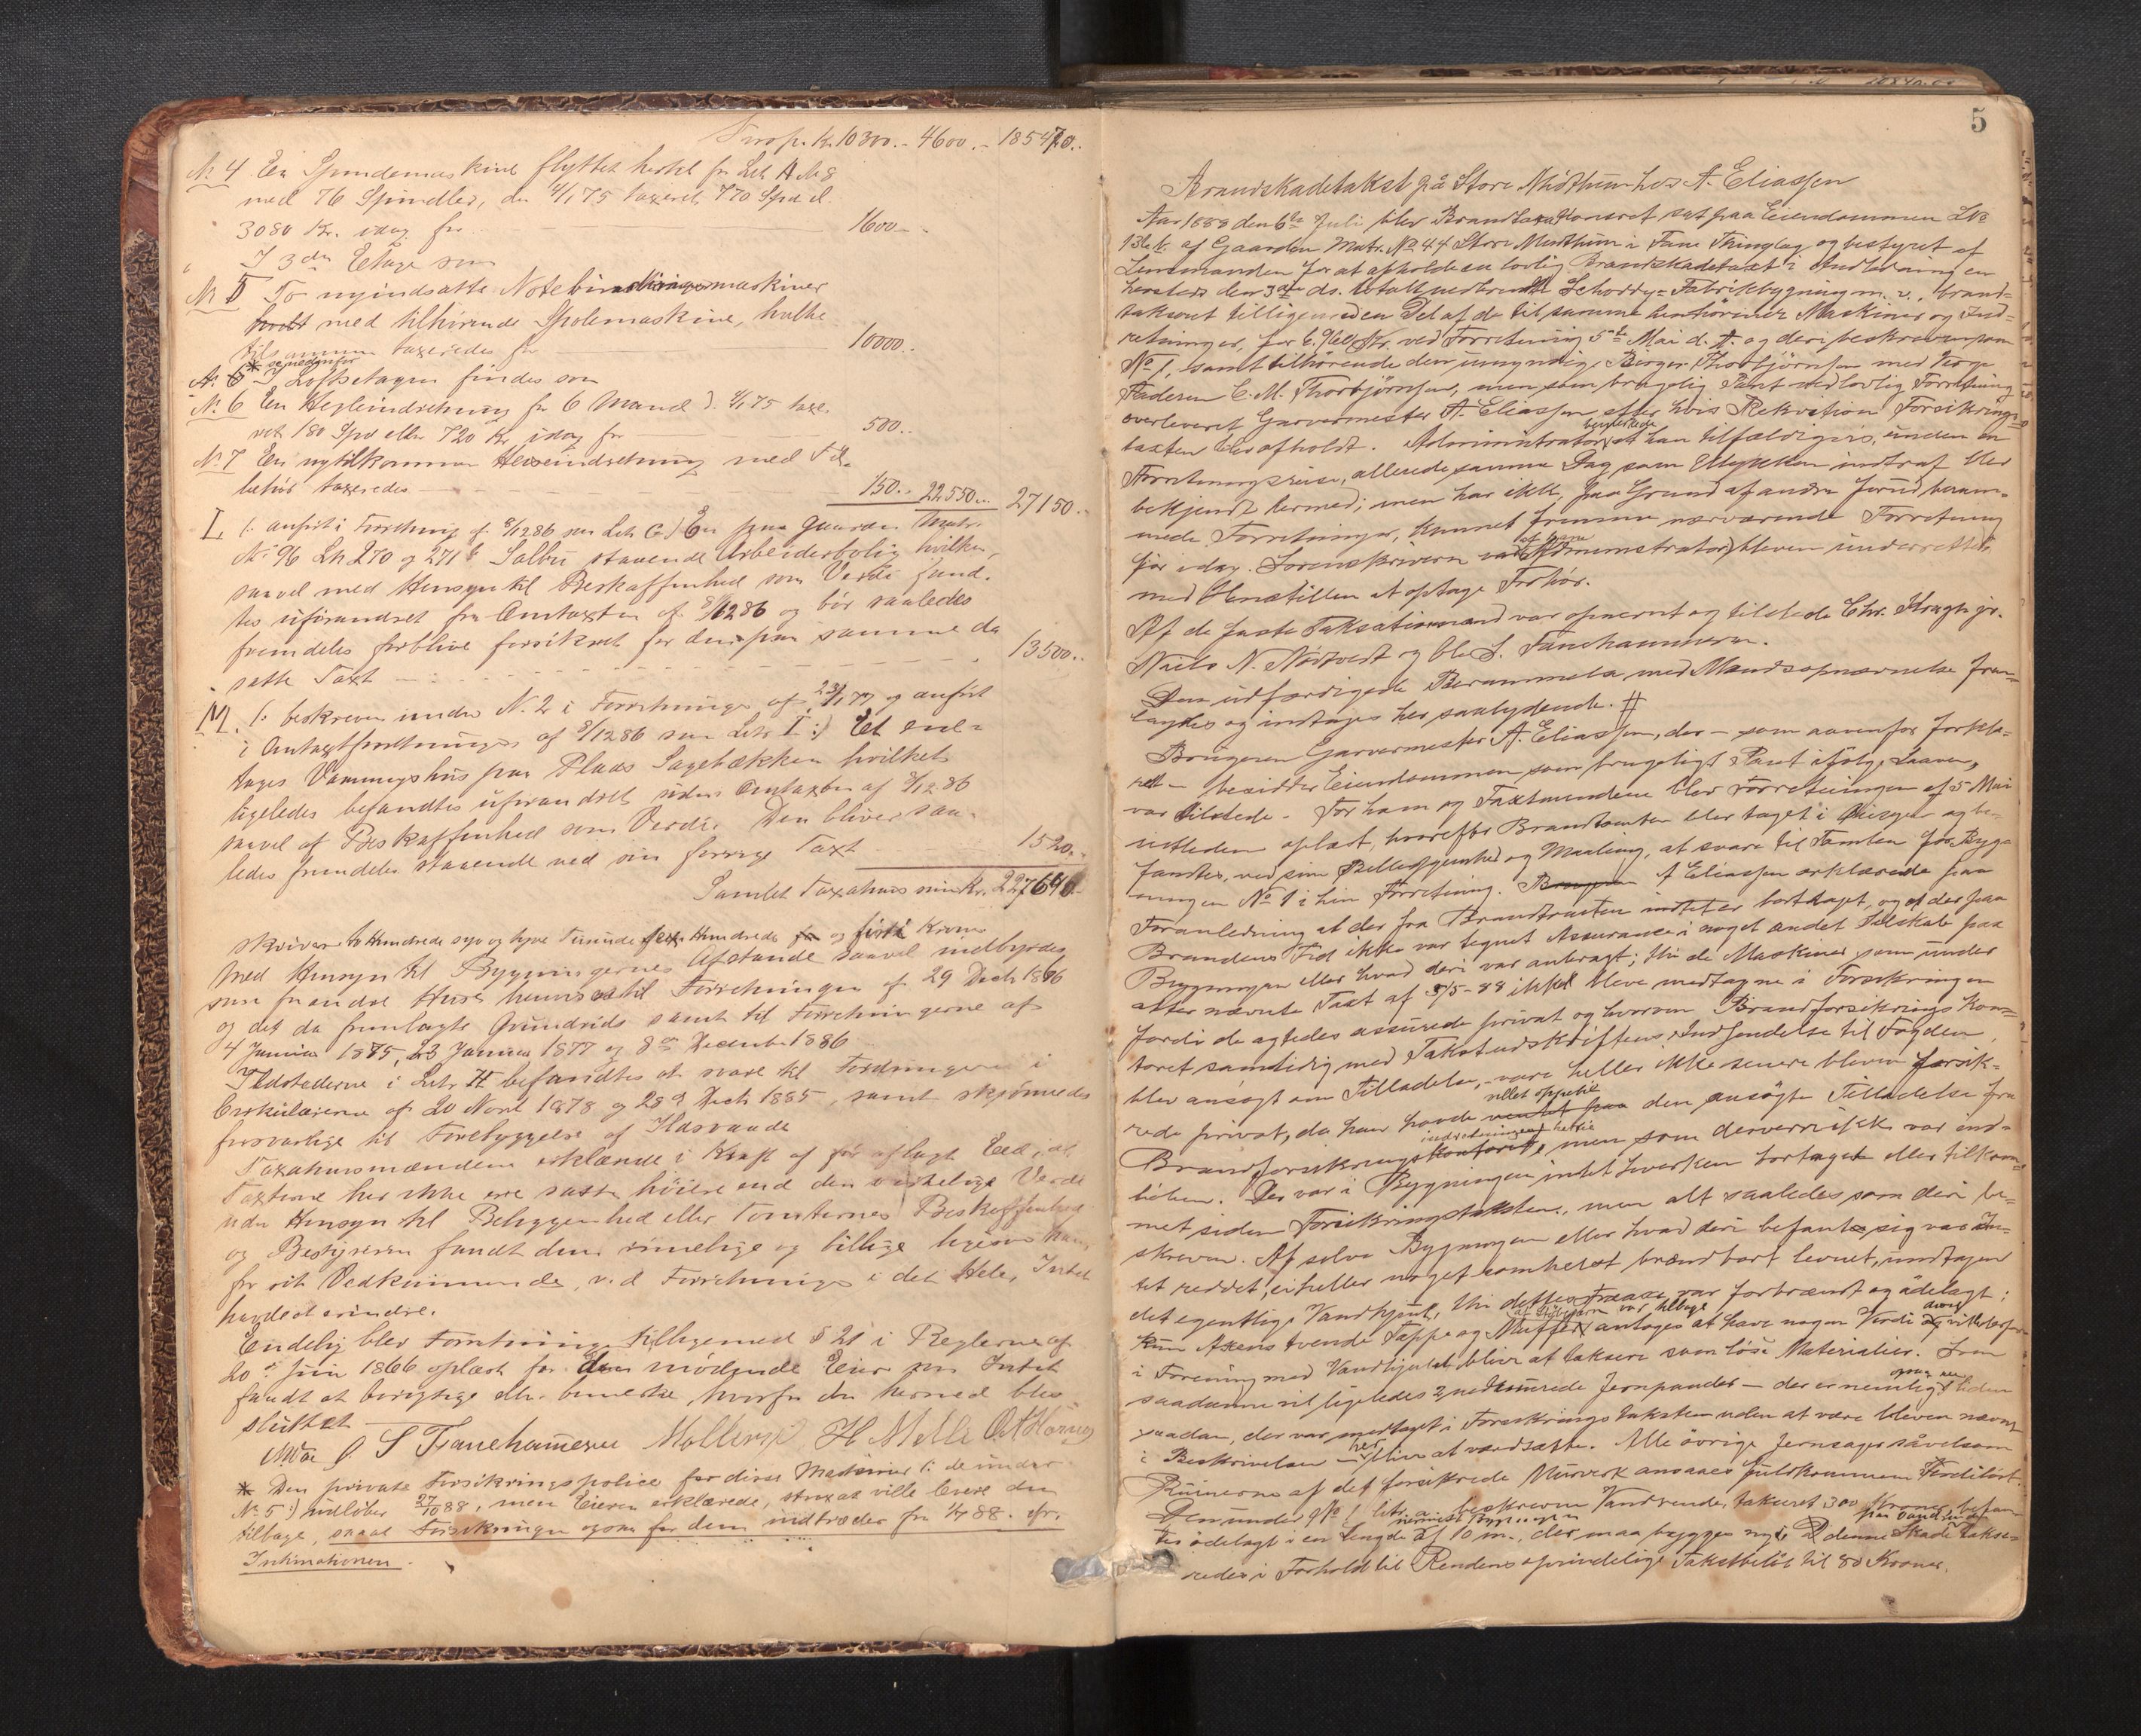 Transp. Kr. 10300.- 4600.- 185470..
No 4 En Spindemaskine flyttet hertil fra Litr. H No 8
med 76 Spindler, den 4/1 75 taxeret 770 Spd el.
3080 Kr. idag for 1600..
I 3die Etage som
No 5 To nyindsatte Notebindingsmaskiner
med tilhörende Spolemaskine, hvilke
tilsammen taxeredes for 10000..
* se nedenfor
I Loftsetagen findes som
No. 6 En Hegleindretning for 6 Mand d. 4/1 75 taxe-
ret 180 Spd eller 720 Kr. idag for 500..
No. 7 En nytilkommen Heiseindretning med Til-
behör taxeredes 150.. 22550.. 27150..
L. (: anfört i Forretning af 8/12 86 som Litr. G) En paa Gaarden Matr.
No 96 Lh 270 og 271b Salbu staaende Arbeiderbolig hvilken,
saavel med Hensyn til Beskaffenhed som Verdi fand-
tes uforandret fra Omtaxten af 8/12 86 og bör saaledes
fremdeles forblive forsikret for den paa samme da
satte Taxt 13500..
M. (: beskreven under No. 2 i Forretninge af 23/1 77 og anfört
i Omtaxtforretningen af 8/12 86 som Litr. I :) Et enë-
tages Vaaningshus paa Plads Sagebækken hvilket
ligeledes befandtes uforandret siden Omtaxten af 8/12 86
saavel af Beskaffenhed som Verdi. Den bliver saa-
ledes fremdeles staaende ved sin forrige Taxt 1520..
Samlet Taxationssum Kr. 227640..
skriver to Hundrede syv og tyve Tusinde sex Hundrede og firti Kroner
Med Hensyn til Bygningernes Afstande saavel indbyrdes
som fra andre Huse henvises til Forretningen af 29 Decb 1866
og det da fremlagte Grundrids samt til Forretningerne af
4 Januar 1875, 23 Januar 1877 og 8de December 1886
Ildstederne i Litr. H befandtes at svare til Fordringerne i
Cirkulærerne af 20 Novb 1878 og 28de Decb 1885, samt skjönnedes
forsvarlige til Forebyggelse af Ildsvaade
Taxationsmændene erklærede i Kraft af för aflagt Eed, at
Taxterne her ikke ere satte höiere end den virkelige Verdi
uden Hensyn til Beliggenhed eller Tomternes Beskaffenhed
og Bestyreren fandt dem rimelige og billige ligesom han
for sit Vedkommende, ved Forretninge i det Hele, Intet
havde at erindre.
Endelig blev Forretningen tilligemed § 21 i Reglerne af
20de Juni 1866 oplæst for den mödende Eier som Intet
fandt at berigtige eller bemerke, hvorfor den hermed blev
sluttet
S Fanehameren Mollerup H Melle
* Den private Forsikringspolice for disse Maskiner (: de under
No. 5 :) udlöber 27/10 88, men Eieren erklærede, strax at ville levere den
tilbage, saaat Forsikringen ogsaa for dem indtræder fra 1/7 88. cfr.
Intimationen.
5
Brandskadetakst på Store Midthun hos A. Eliassen
Aar 1888 den 6te Juli blev Brandtaxationsret sat paa Eiendommen LNo
136 b af Gaarden Matr. No 44 Store Midthun i Fane Thinglag og bestyret af
Lensmanden for at afholde en lovlig Brandskadetaxt i Anledning en
hersteds den 3die ds. totalt nedbrændt Schoddy-Fabrikbygning m. v., brand-
takseret tilligemed en Del af de til samme henhörende Maskiner og Ind-
retninger, for 6.960 Kr. ved Forretning 5te Mai d. A. og deri beskreven som
No 1, samt tilhörende den umyndige Birger Thorbjörnsen med Verge
Faderen C. M. Thorbjörnsen, men som brugelig Pant ved lovlig Forretning
overleveret Garvermester A. Eliassen, efter hvis Rekvisition Forsikrings-
taxten blev afholdt. Administrator bemerkede at han tilfældigvis, under en
Forretningsreise, allerede samme Dag som Ulykken indtraf blev
bekjendt hermed; men har ikke, paa Grund af andre forud beram-
mede Forretninger, kunnet fremme nærværende Forretning
för idag. Sorenskriveren er af Administrator bleven underrettet
med Henstillen at optage Forhör.
Af de faste Taksationsmænd var opnævnt og tilstede Chr. Kragh jr.
Niels N. Nödtvedt og Ole S. Fanehammeren.
Den udfærdigede Berammelse med Mandsopnævnelse frem-
lagdes og indtages her saalydende. #
Brugeren Garvermester A. Eliassen, der – som aavenfor forkla-
ret – besidder Eiendommen som brugeligt Pant ifölge Laaven,
var tilstede. For ham og Taxtmendene blev Forretningen af 5 Mai
indledn oplæst, hvorefter Brandtomten blev taget i Öiesyn og be-
fandtes, ved sin Beliggenhed og Maaling, at svare til Tomten for Byg-
ningen No 1 i hin Forretning. A Eliassen erklærede paa
Foranledning at der fra Brandtomten intet er borttaget, og at der paa
Brandens Tid ikke var tegnet Assurance i noget andet Selskab paa
Bygningen eller hvad deri var anbragt; thi de Maskiner som under
efter nævnte Taxt af 5/5-88 ikke bleve medtagne i Forsikringen
fordi de agtedes assurede privat og hvorom Brandforsikrings Kon-
toret samtidig med Takstudskriftens Indsendelse til Fogden
blev ansögt om Tilladelse, – vare heller ikke senere bleven forsik-
rede privat, da han havde villet oppebie den ansögte Tilladelse fra
Brandforsikringsindretningen hertil, men som derverrisik var ind-
löben. Der var i Bygningen intet hverken borttaget eller tilkom-
met siden Forsikringstaksten, men alt saaledes som deri be-
skreven. Af selve Bygningen eller hvad deri befantes sig var In-
tet reddet, ei heller noget somhelst brændbart levnet, undtagen
det egentlige Vandhjul, thi dettes var forbrændt og ödelagt;
kun Axens tvende Tappe og Muffer af Stöbejern var tilbage antages at have nogen Verdi
i Forening med Vandhjulet bliver at taksere som löse Materialier. Som
saadanne vil ligeledes 2 nedmurede Jernpander – der er nemlig
saadan, der var medtaget i Forsikrings taksten uden at være bleven nævnt
i Beskrivelsen – her blive at værdsætte. Alle övrige Jernsager såvelsom
Ruinerne af det forsikrede Murverk ansaaes fuldkommen Verdilöst.
Den under No 1 litr. a beskreven Vandrende, takseret 300 Kroner, befan-
tes ödelagt i en Længde af 10 m. der maa bygges nyt. denne Skade takse-
redes i Forhold til Rendens oprindelige Takstbelöb til 80 Kroner.